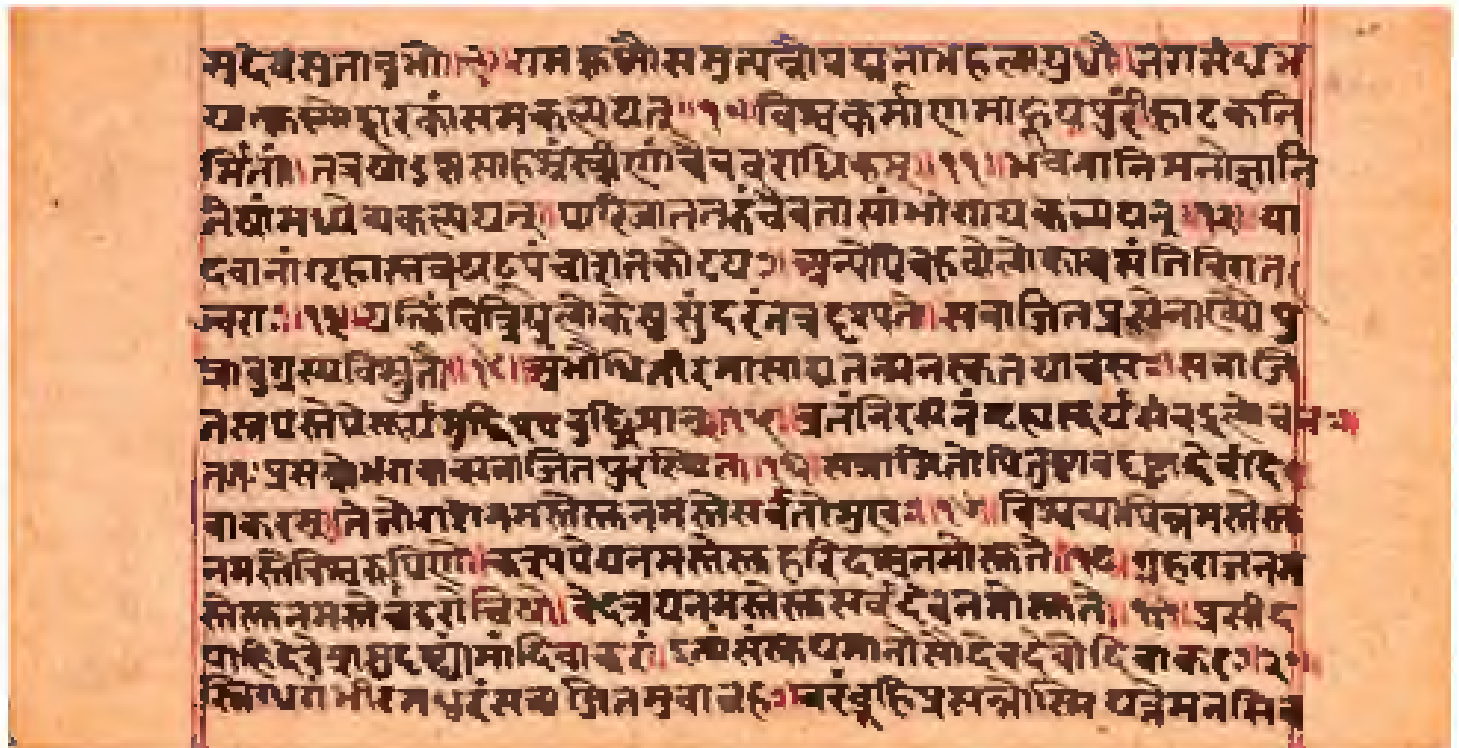 सुदेवसुतावुभौ॥ रामकृष्णौसमुत्पन्नौपद्मनाभहलायुधौ॥जरासंधभ
यात्कृष्णोद्वारकांसमकल्पयत्॥१०॥विश्वकर्माणमाहूयपुरींहाटकनि
र्मितां॥तत्रषोडशसाहस्रंस्त्रीणांचैवशताधिकम्॥११॥भवनानिमनोज्ञानि
तेषांमध्येव्यकल्पयत्॥पारिजाततरुंचैवतासांभोगायकल्पयत्॥१२॥या
दवानांगृहास्तत्रषट्पंचाशतकोटयः॥अन्येपिबहवोलोकावसंतिविगत
ज्वराः॥१३॥यत्किंचित्त्रिषुलोकेषुसुंदरंतत्रदृश्यते॥सत्राजितप्रसेनाख्यौपु
त्रावुग्रस्यविश्रुतौ॥१४॥अंभोधितीरमासाद्यतन्मनस्कतयाचसः॥सत्राजि
तस्तपस्तेपेसूर्यमुद्दिश्यबुद्धिमान्॥१५॥व्रतंनिरशनंगृह्यसूर्यसंबद्धलोचनः॥
ततःप्रसन्नोभगवान्सत्राजितपुरःस्थितः॥१६॥सत्राजितोपितुष्टावदृष्ट्वादेवंदि
वाकरम्॥तेजोराशेनमस्तेस्तुनमस्तेसर्वतोमुख॥१७॥विश्वव्यापिन्नमस्तेस्तु
नमस्तेविश्वरूपिणे॥काश्यपेयनमस्तेस्तुहरिदश्वनमोस्तुते॥१८॥ग्रहराजनम
स्तेस्तुनमस्तेचंडरोचिषे॥वेदत्रयनमस्तेस्तुसर्वदेवनमोस्तुते॥१९॥प्रसीद
पाहिदेवेशसुदृष्ट्यामांदिवाकर॥इत्थंसंस्तूयमानोसौदेवदेवोदिवाकरः॥२०॥
स्निग्धगंभीरमधुरंसत्राजितमुवाचह॥वरंब्रूहिप्रसन्नोस्मियत्तेमनसिव